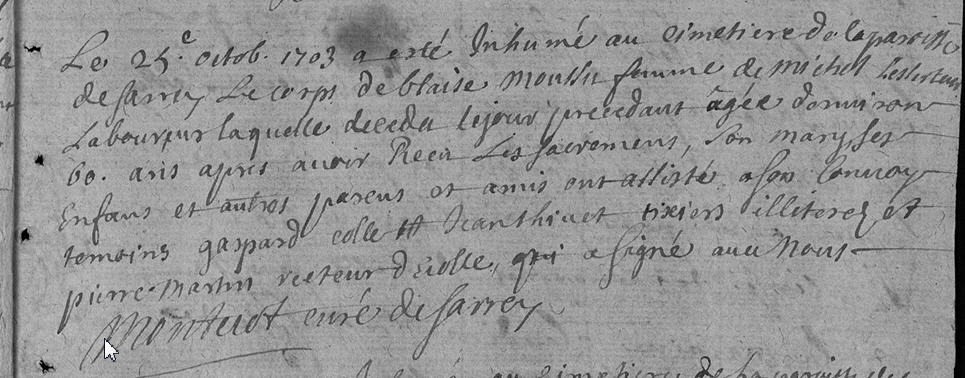 Le 25.e octob. 1703 a esté Inhumé au cimetiere de la paroisse
de sarrey Le corps de blaise moussu femme de michel
Laboureur laquelle deceda le jour precedant âgée denviron
60. ans apres avoir Receu Les sacremens, son mary, ses
Enfans et autres parens et amis ont assisté a son Convoy
temoins gaspard collettt Jean thivet tixiers illiterez et
pierre martin recteur d'ecolle, qui a signé avec Nous
Montenot curé de sarrey
au cimetiere de la paroisse de